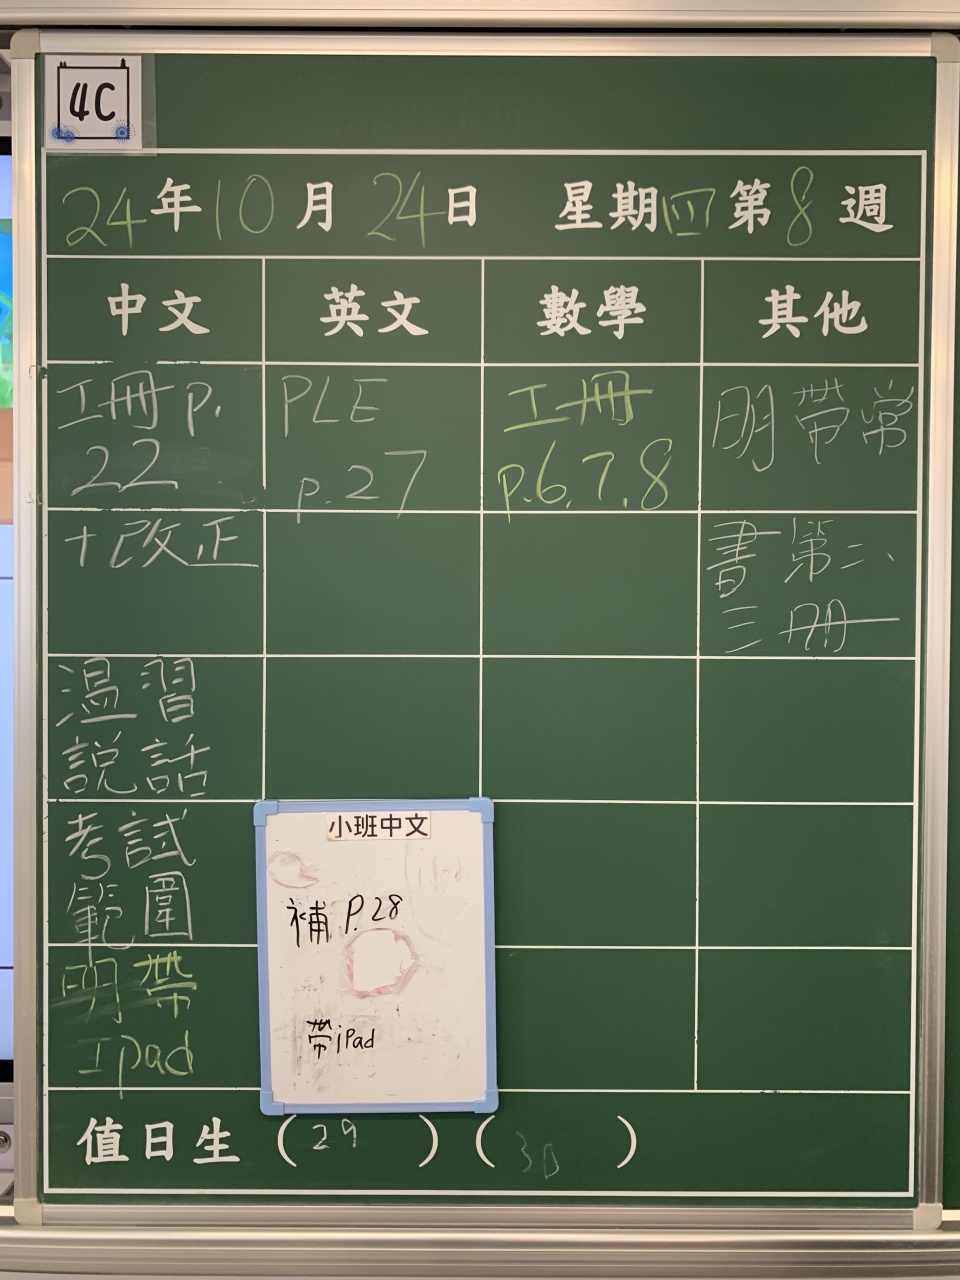 4C
24年10月24日 星期四第8週
中文 英文 數學 其他
工冊p.
22
PLE
p.27
工冊
p.6,7,8
明帶常
書第二、
三冊
+改正
溫習
說話
考試
範圍
明帶
Ipad
小班中文
補 P.28
帶iPad
值日生 (29)(30)